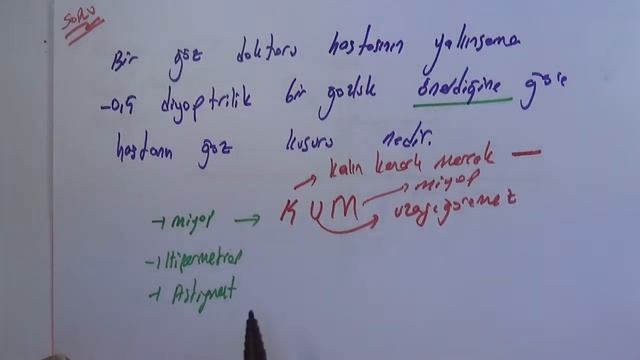 SORU
Bir göz doktoru hastasının yalnızama
-0,5 diyoptrilik bir gözlük önerdiğine göre
hastanın göz kusuru nedir.
kalın kenarlı mercek —
→ miyop → KUM miyop
uzağı göremez
→ Hipermetrop
→ Astigmat